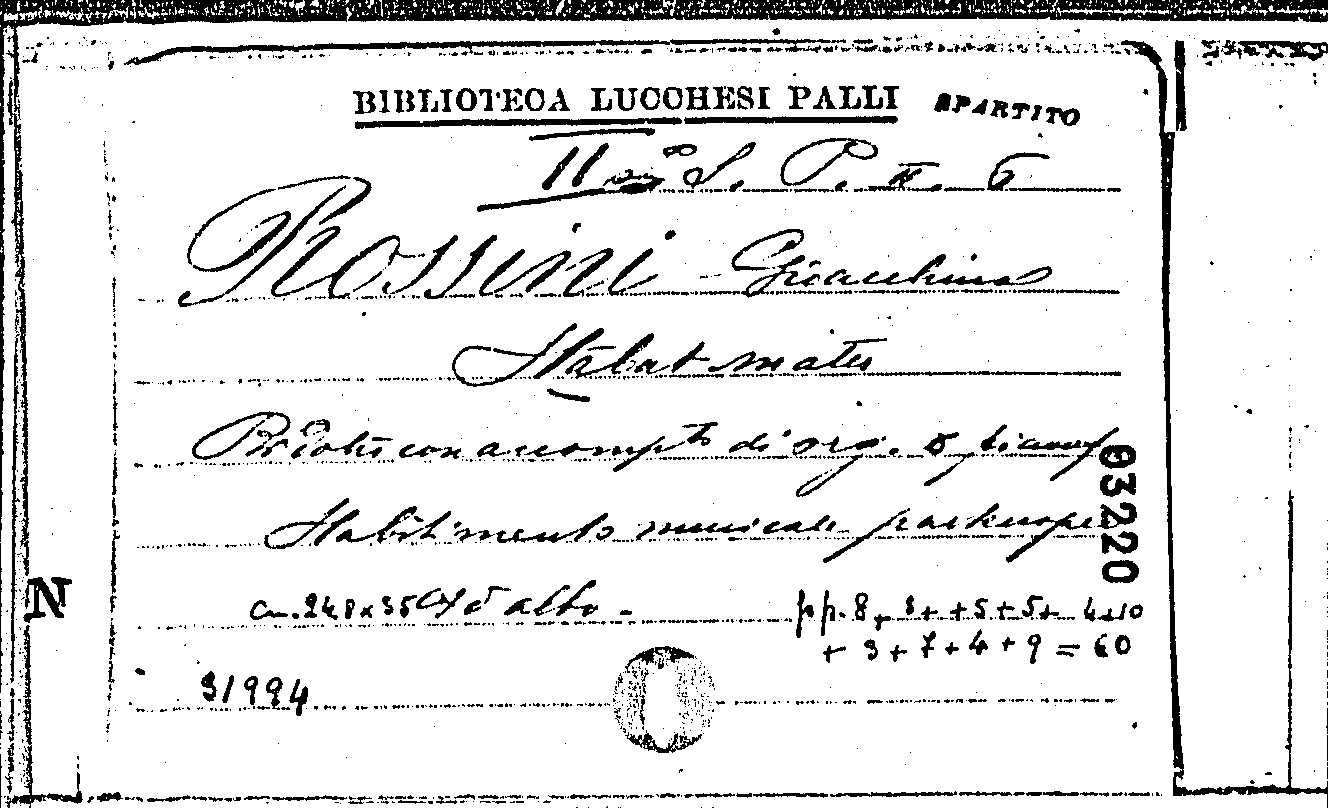 BIBLIOTECA LUCCHESI PALLI
SPARTITO
11 S. P. II. 6
Rossini Gioacchino
Stabat mater
Ridotti con accompto di org. o pianof
03220
Stabilimento musicale partenope
N
cm. 248x35 alto - pp. 8+ 3+ +5+5+ 4+10
+ 3+7+4+9 = 60
31994